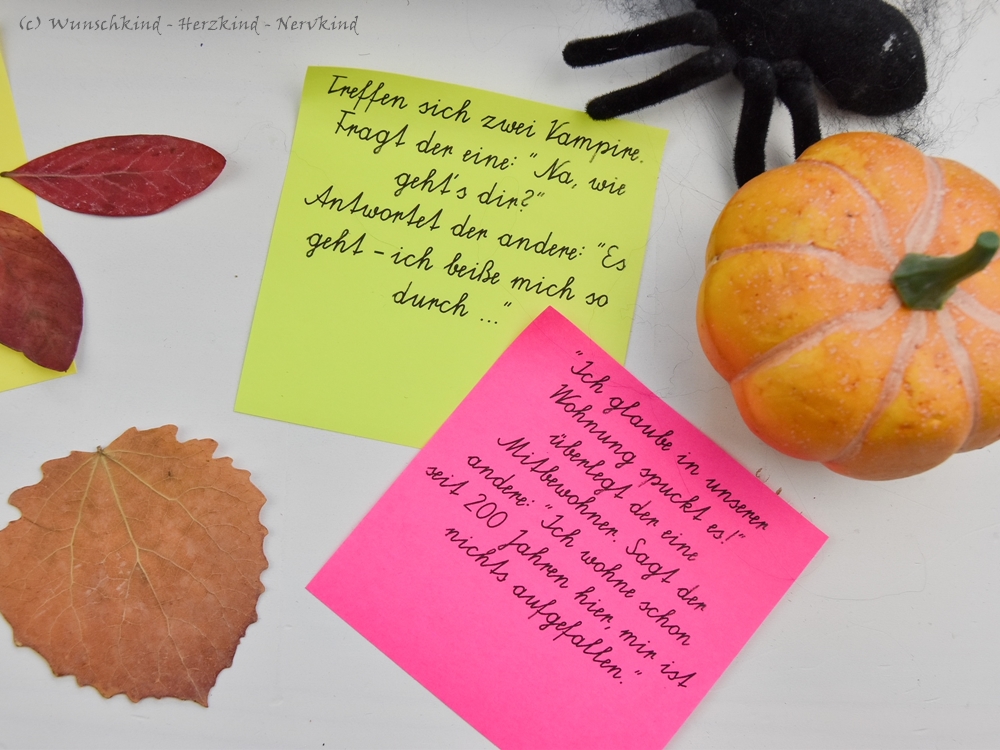 (c) Wunschkind - Herzkind - Nervkind
Treffen sich zwei Vampire.
Fragt der eine: "Na, wie
geht's dir?"
Antwortet der andere: "Es
geht - ich beiße mich so
durch ..."
"Ich glaube in unserer
Wohnung spuckt es!"
überlegt der eine
Mitbewohner. Sagt der
andere: "Ich wohne schon
seit 200 Jahren hier, mir ist
nichts aufgefallen."